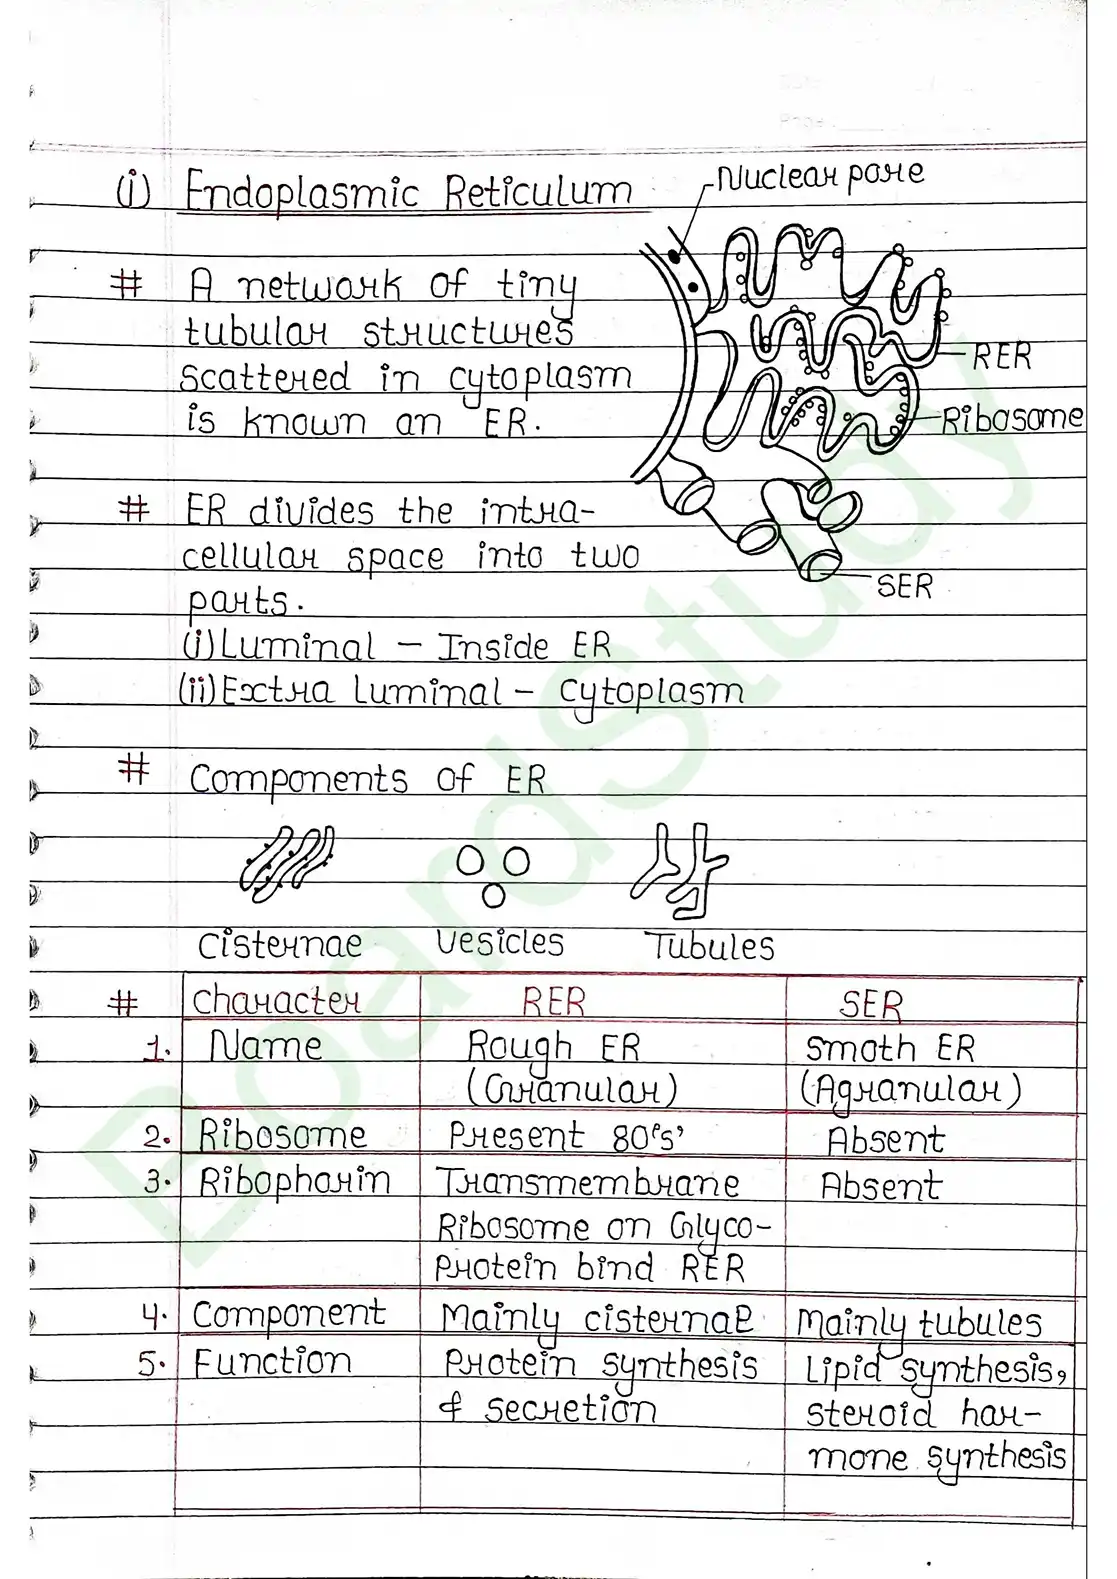 (i) Endoplasmic Reticulum
Nuclear pore
# A network of tiny
tubular structures
scattered in cytoplasm
is known an ER.
RER
Ribosome
# ER divides the intra-
cellular space into two
parts.
SER
(i) Luminal – Inside ER
(ii) Extra Luminal – Cytoplasm
# Components of ER
Cisternae Vesicles Tubules
# Character RER SER
1. Name Rough ER Smoth ER
(Granular) (Agranular)
2. Ribosome Present 80's' Absent
3. Ribophorin Transmembrane Absent
Ribosome on Glyco-
protein bind RER
4. Component Mainly cisternae Mainly tubules
5. Function Protein synthesis Lipid synthesis,
& secretion steroid hor-
mone synthesis
BoardStudy